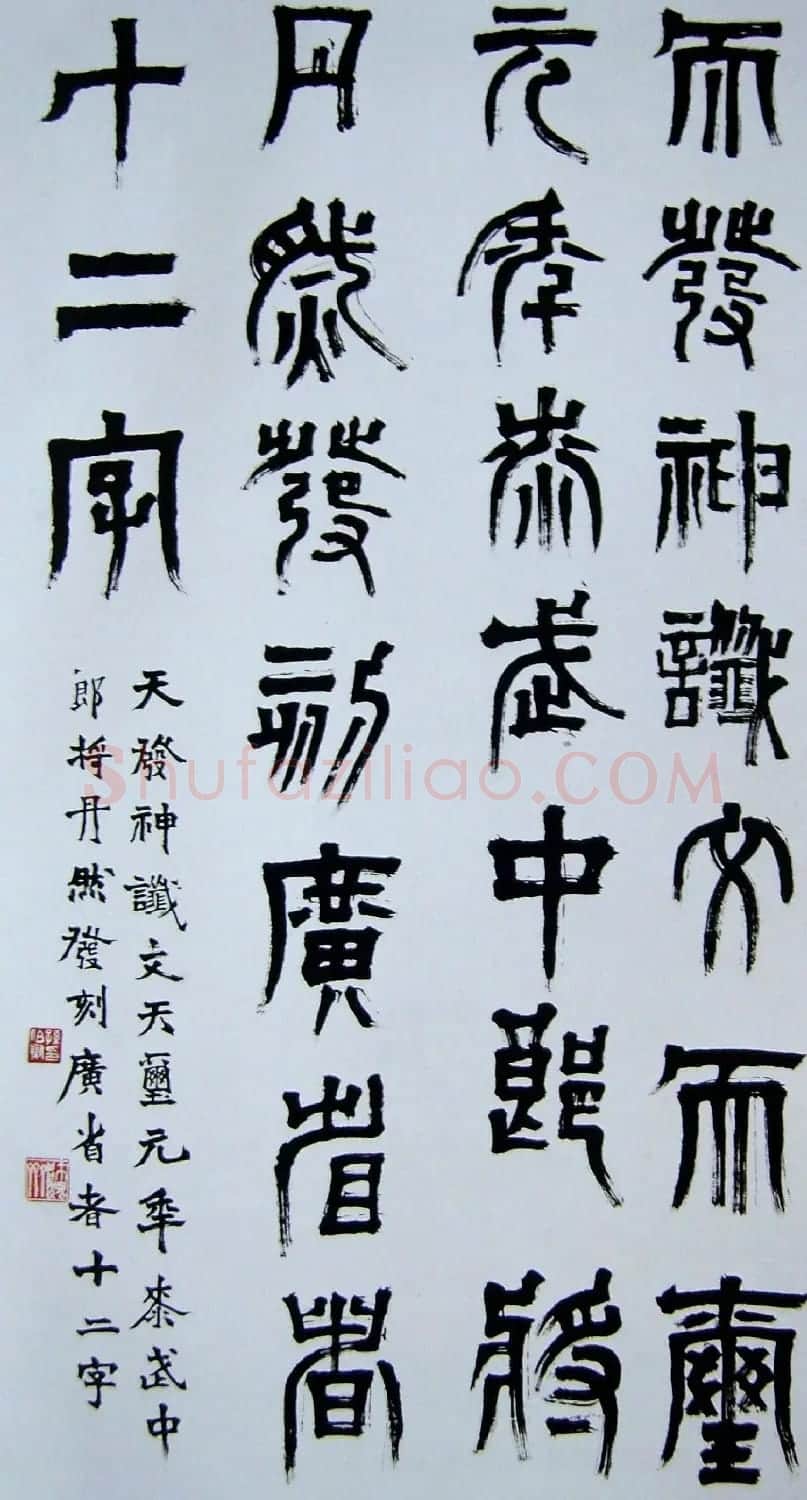 天發神讖文天璽
元年桼武中郎將
丹然發刻廣省者
十二字
天發神讖文天璽元年桼武中
郎将丹然發刻廣省者十二字
Shufaziliao.COM